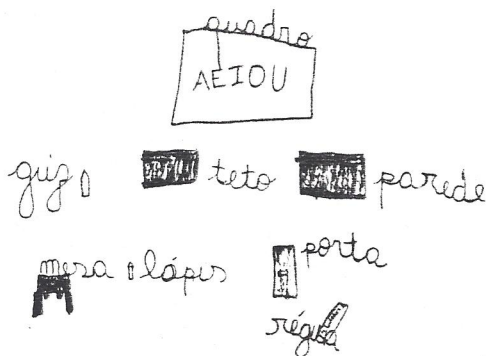 quadro
AEIOU
giz teto parede
mesa lápis porta
régua